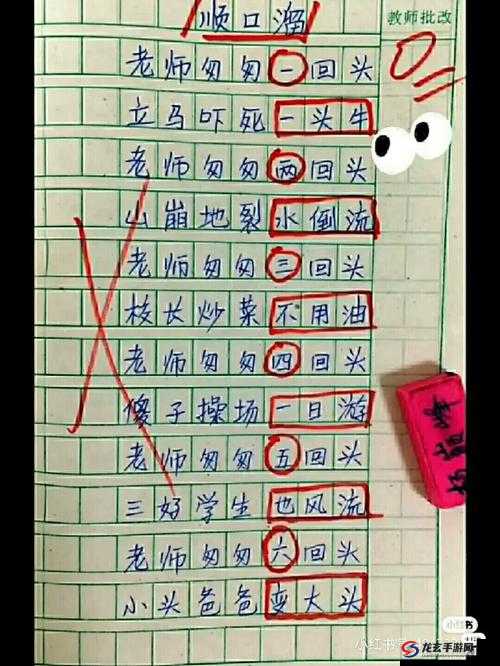 顺口溜
教师批改
0
老师匆匆一回头
立马吓死一头牛
老师匆匆两回头
山崩地裂水倒流
老师匆匆三回头
枝长炒菜不用油
老师匆匆四回头
傻子操场一日游
老师匆匆五回头
三好学生也风流
老师匆匆六回头
小头爸爸变大头
小红书
小红书
龙玄手游网